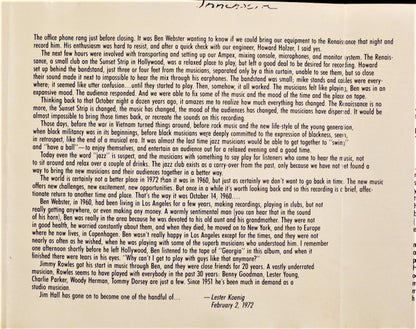 The office phone rang just before closing. It was Ben Webster wanting to know if we could bring our equipment to the Renaissance that night and
record him. His enthusiasm was hard to resist, and after a quick check with our engineer, Howard Holzer, I said yes.
The next few hours were involved with transporting and setting up our Ampex, mixing console, microphones, and monitor system. The Renais-
sance, a small club on the Sunset Strip in Hollywood, was a relaxed place to play, but left a good deal to be desired for recording. Howard
set up behind the bandstand, just three or four feet from the musicians, separated only by a thin curtain, unable to see them, but so close
their sound made it next to impossible to hear the mix through his earphones. The bandstand was small; mike stands and cables were every-
where; it seemed like utter confusion...until they started to play. Then, somehow, it all worked. The musicians felt like playing, Ben was in an
expansive mood. The audience responded. And we were able to fix some of the music and the mood of the time and the place on tape.
Thinking back to that October night a dozen years ago, it amazes me to realize how much everything has changed. The Renaissance is no
more, the Sunset Strip is changed, the music has changed, the mood of the audiences has changed, the musicians have dispersed. It would be
almost impossible to bring those times back, or recreate the sounds on this recording.
Those days, before the war in Vietnam turned things around, before rock music and the new life-style of the young generation,
when black militancy was in its beginnings, before black musicians were deeply committed to the expression of blackness, seem,
in retrospect, like the end of a musical era. It was almost the last time jazz musicians would be able to get together to "swing"
and "have a ball"—to enjoy themselves, and entertain an audience out for a relaxed evening and a good time.
Today even the word "jazz" is suspect, and the musicians with something to say play for listeners who come to hear the music, not
to sit around and relax over a couple of drinks. The jazz club exists as a carry-over from the past, only because we have not found a
way to bring the new musicians and their audiences together in a better way.
The world is certainly not a better place in 1972 than it was in 1960, but just as certainly we don't want to go back in time. The new music
offers new challenges, new excitement, new opportunities. But once in a while it's worth looking back and so this recording is a brief, affec-
tionate return to another time and place. That's the way it was October 14, 1960....
Ben Webster, in 1960, had been living in Los Angeles for a few years, making recordings, playing in clubs, but not
really getting anywhere, or even making any money. A warmly sentimental man (you can hear that in the sound
of his horn), Ben was really in the area because he was devoted to his old aunt and his grandmother. They were not
in good health, he worried constantly about them, and when they died, he moved on to New York, and then to Europe
where he now lives, in Copenhagen. Ben wasn't really happy in Los Angeles except for the times, and they were not
nearly as often as he wished, when he was playing with some of the superb musicians who understood him. I remember
one afternoon shortly before he left Hollywood, Ben listened to the tape of "Georgia" in this album, and when it
finished there were tears in his eyes. "Why can't I get to play with guys like that anymore?"
Jimmy Rowles got his start in music through Ben, and they were close friends for 20 years. A vastly underrated
musician, Rowles seems to have played with everybody in the past 30 years: Benny Goodman, Lester Young,
Charlie Parker, Woody Herman, Tommy Dorsey are just a few. Since 1951 he's been much in demand as a
studio musician.
Jim Hall has gone on to become one of the handful of...
—Lester Koenig
February 2, 1972